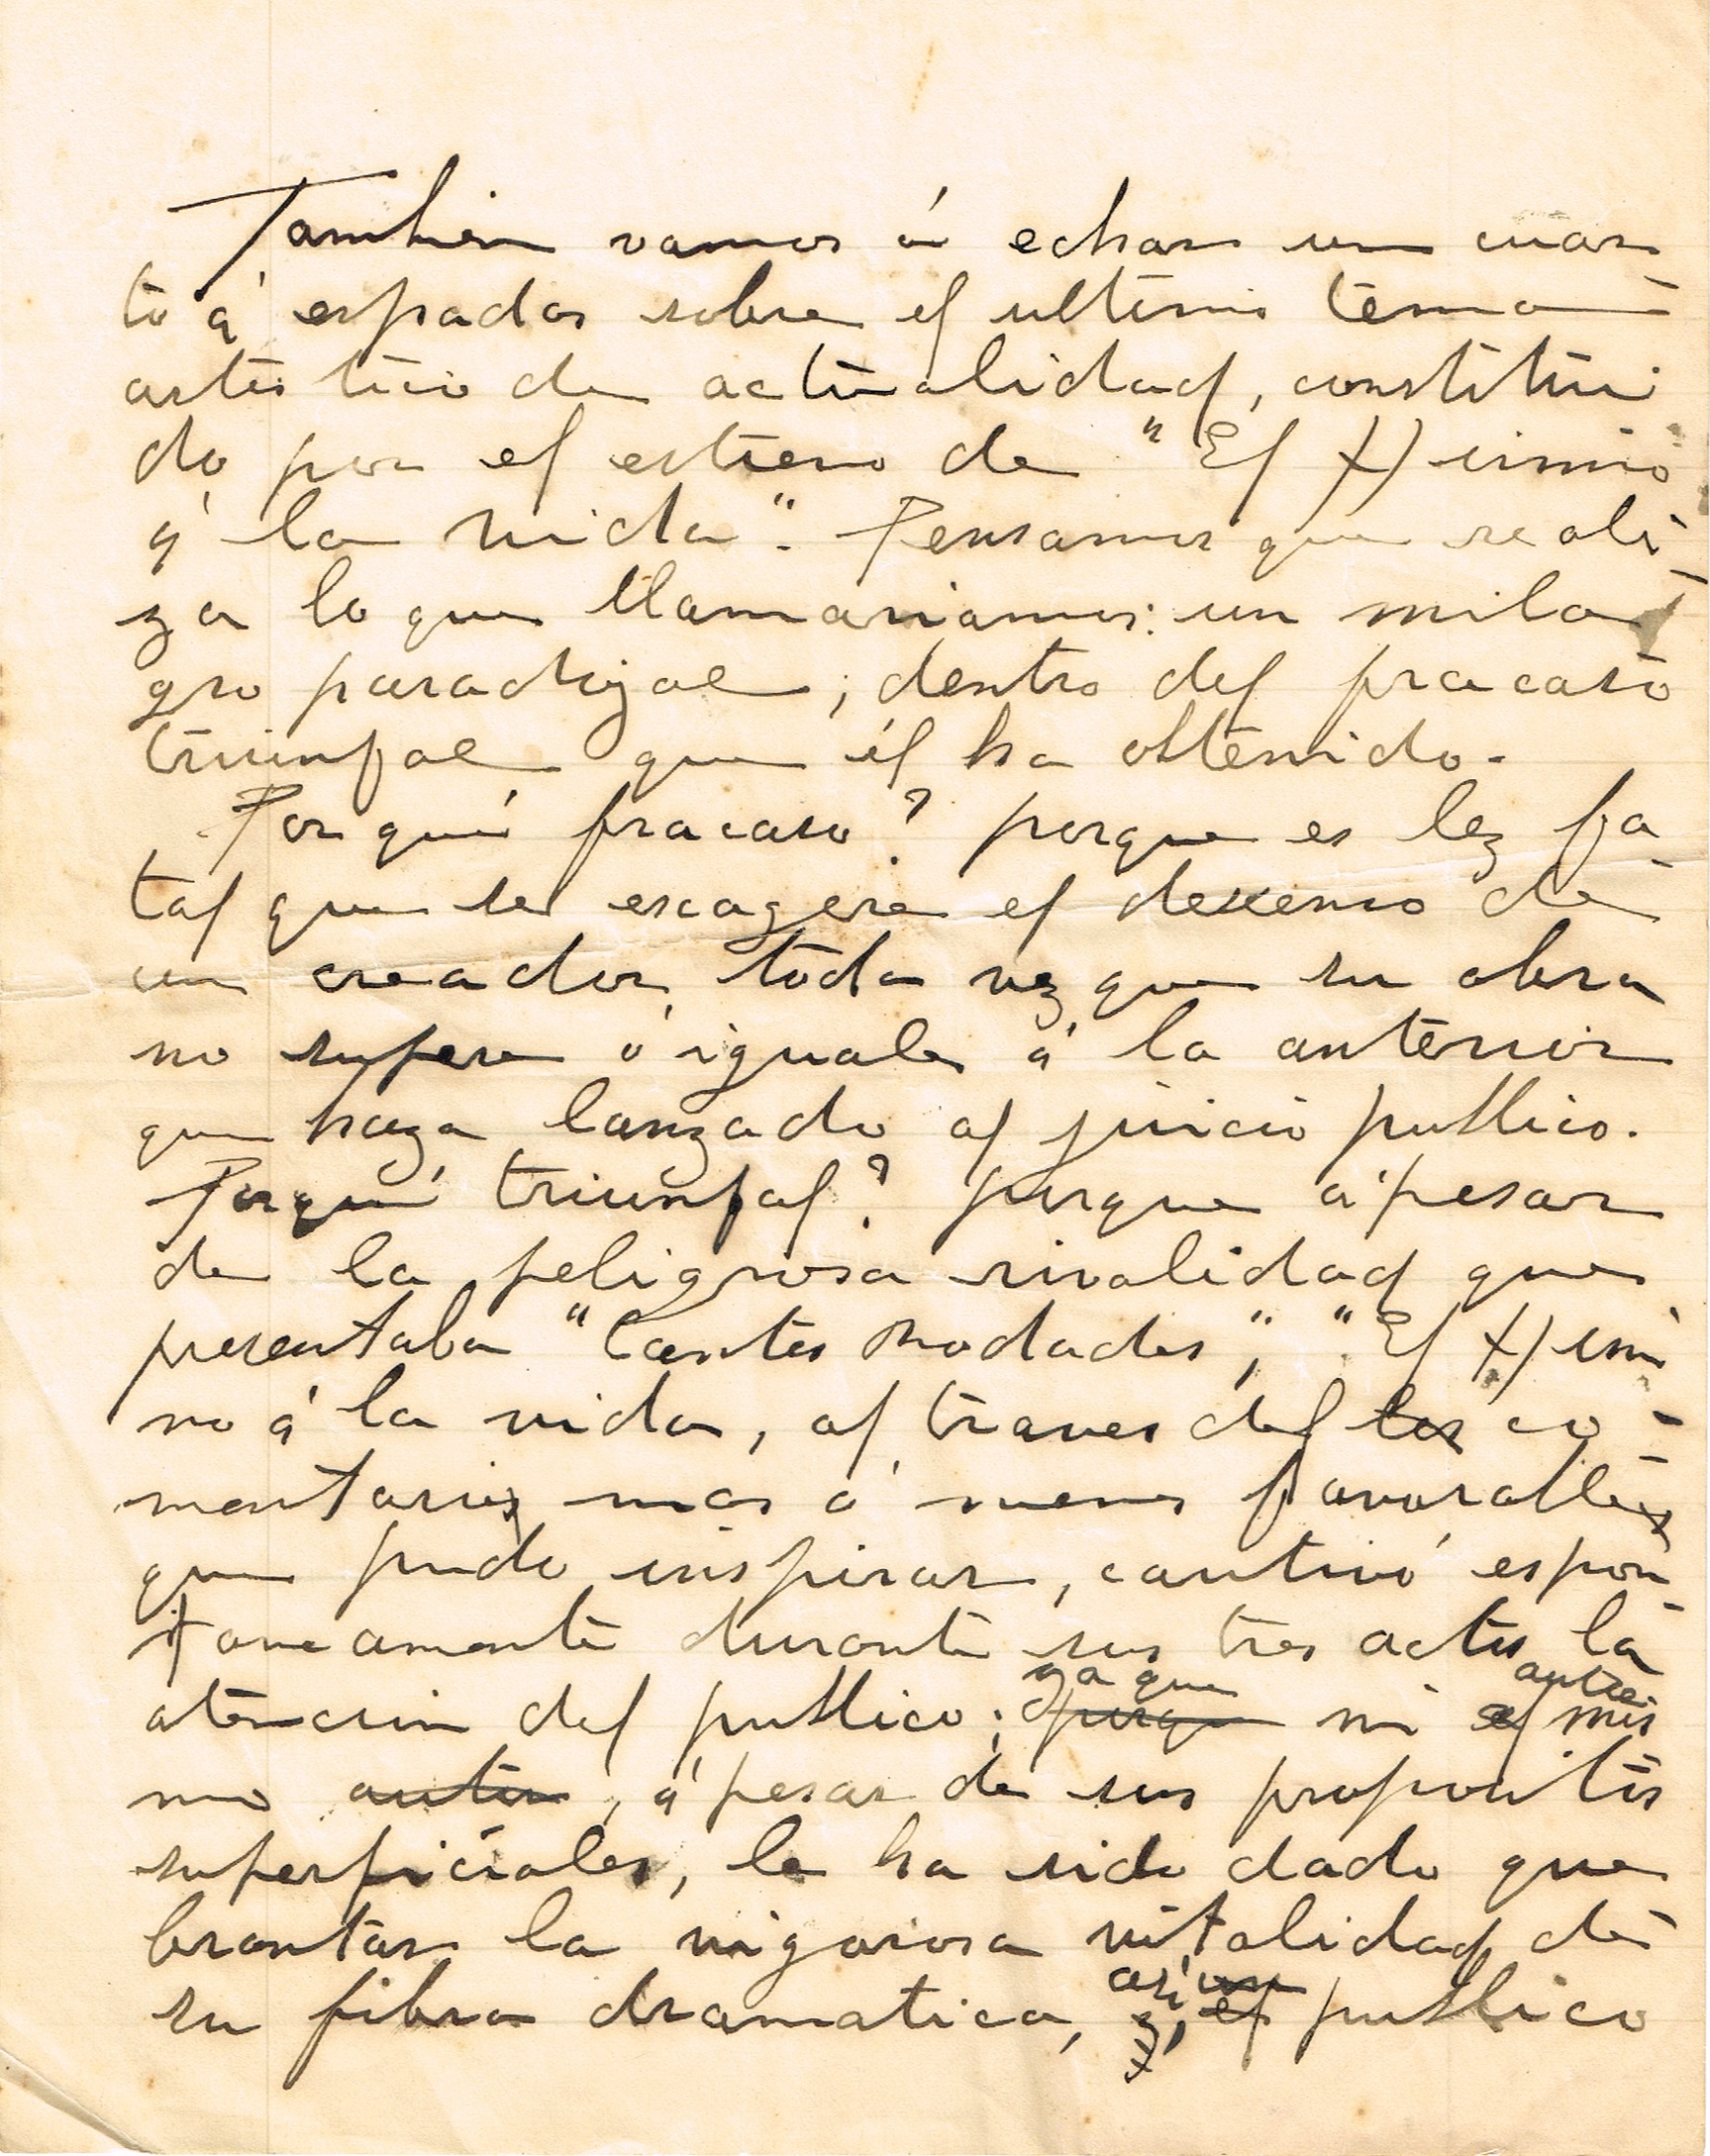 Tambien vamos á echar un cuar
to á espadas sobre el ultimo tema
artistico de actualidad, constitui
do por el estreno de "El Himno
á la vida". Pensamos que reali
za lo que llamariamos: un mila
gro paradojal; dentro del fracaso
triunfal que él ha obtenido.
Por qué fracaso? porque es ley fa
tal que se exagere el descenso de
un creador, toda vez que su obra
no supere ó iguale á la anterior
que haya lanzado al juicio publico.
Porqué triunfal? porque á pesar
de la peligrosa rivalidad que
presentaba "Cantos Rodados", "El Him
no á la vida, al traves del los co-
mentarios mas ó menos favorables
que pudo inspirar, cautivó espon
taneamente durante sus tres actos la
atencion del publico; porque ya que ni el autor mis
mo autor, á pesar de sus propositos
superficiales, le ha sido dado que
brantar la vigorosa vitalidad de
su fibra dramatica, y, así el publico